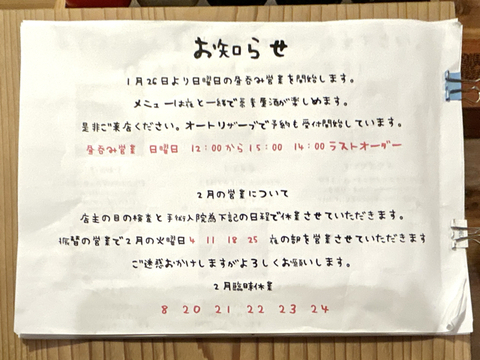 お知らせ
1月26日より日曜日の昼呑み営業を開始します。
メニューは夜と一緒で昼酒が楽しめます。
是非ご来店ください。オートリザーブで予約も受付開始しています。
昼呑み営業 日曜日 12:00から15:00 14:00ラストオーダー
2月の営業について
店主の目の検査と手術入院為下記の日程で休業させていただきます。
振替の営業で2月の火曜日4 11 18 25 夜の部を営業させていただきます
ご迷惑おかけしますがよろしくお願いします。
2月臨時休業
8 20 21 22 23 24